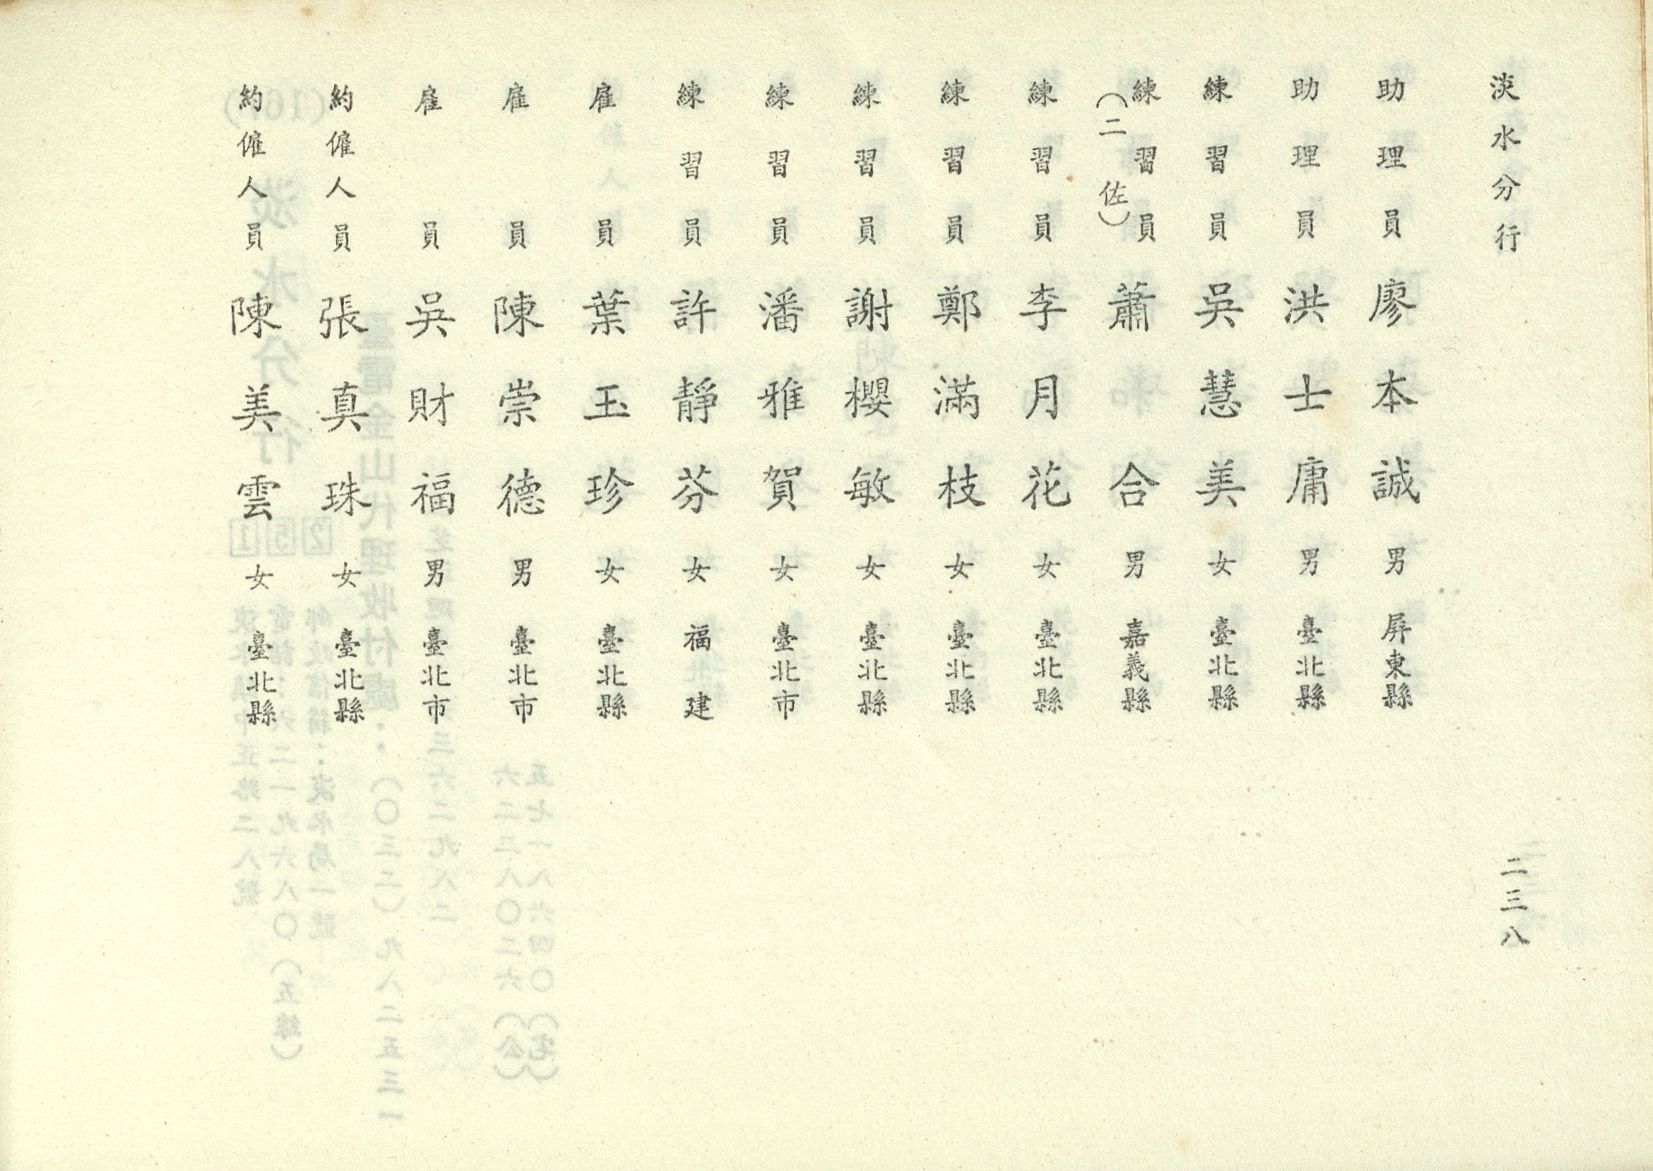 淡水分行
二三八
助理員 廖本誠 男 屏東縣
助理員 洪士庸 男 臺北縣
練習員 吳慧美 女 臺北縣
練習員（二佐） 蕭合 男 嘉義縣
練習員 李月花 女 臺北縣
練習員 鄭滿枝 女 臺北縣
練習員 謝櫻敏 女 臺北縣
練習員 潘雅賀 女 臺北市
練習員 許靜芬 女 福建
雇員 葉玉珍 女 臺北縣
雇員 陳崇德 男 臺北市
雇員 吳財福 男 臺北市
約僱人員 張真珠 女 臺北縣
約僱人員 陳美雲 女 臺北縣